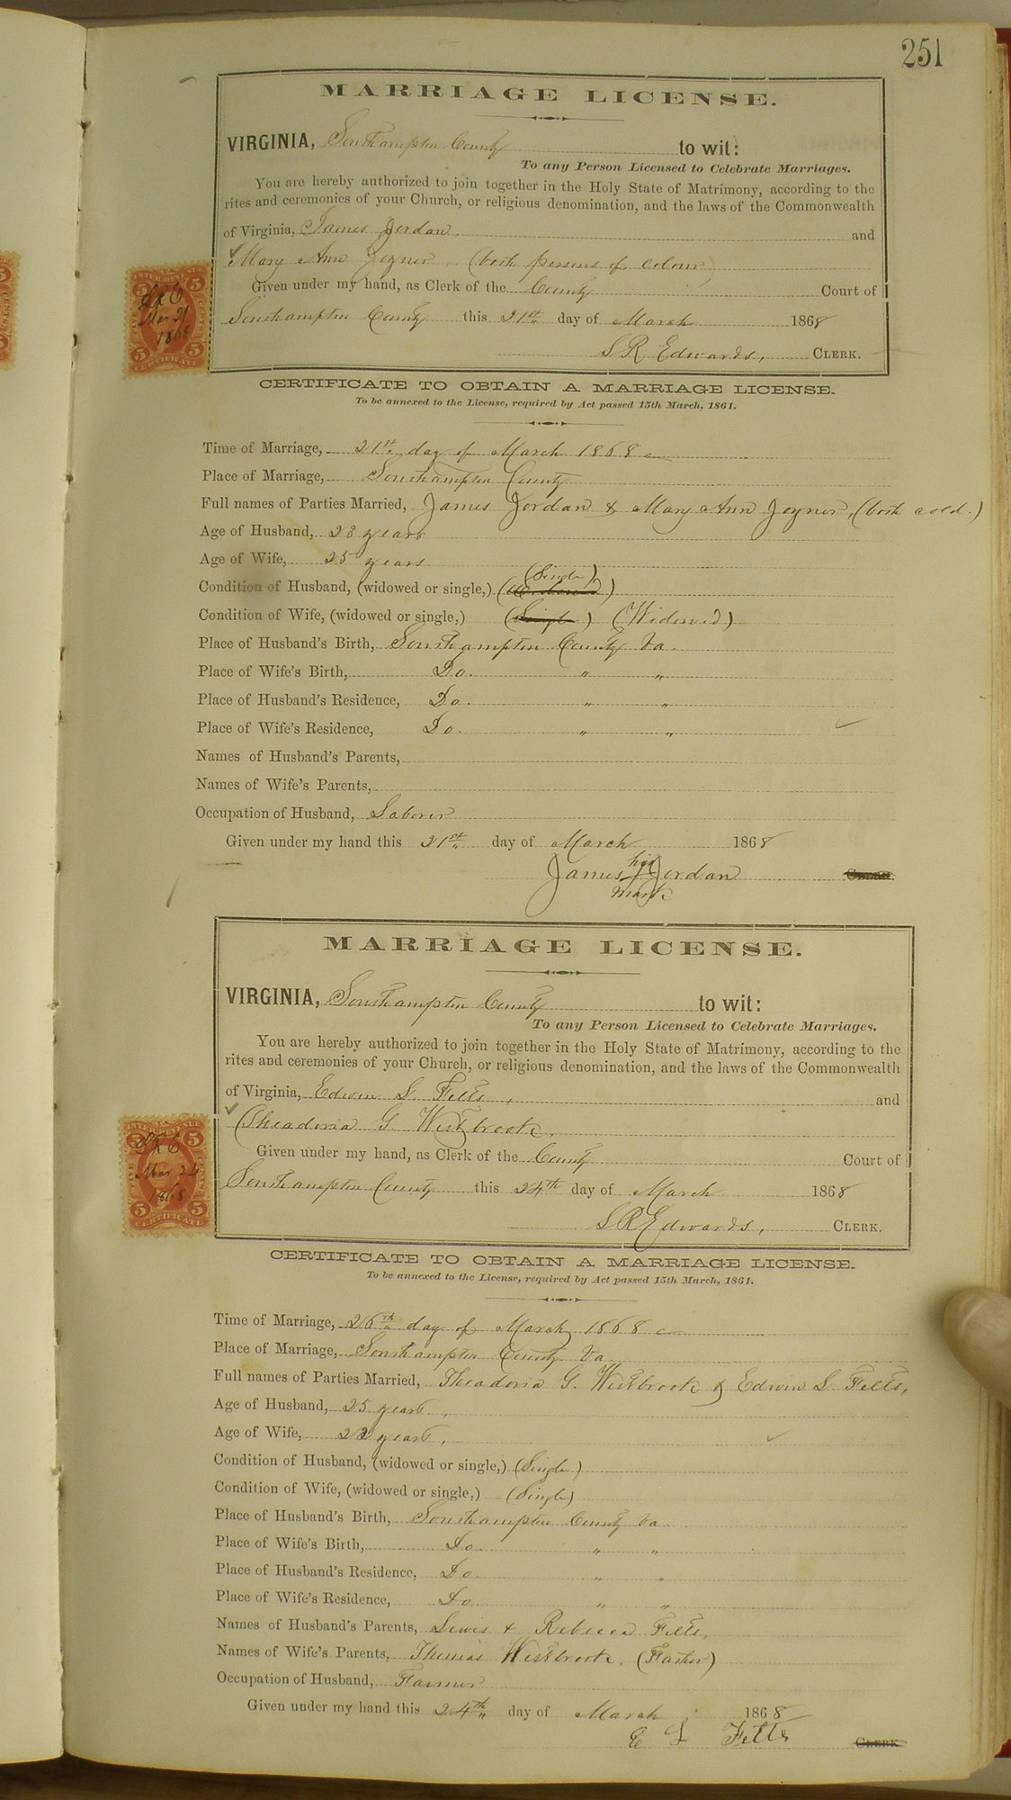 251
MARRIAGE LICENSE.
VIRGINIA, Southampton County to wit:
To any Person Licensed to Celebrate Marriages.
You are hereby authorized to join together in the Holy State of Matrimony, according to the
rites and ceremonies of your Church, or religious denomination, and the laws of the Commonwealth
of Virginia, James Jordan and
Mary Ann Joyner, (both persons of colour)
Given under my hand, as Clerk of the County Court of
Southampton County this 21st day of March 1868
S R Edwards, CLERK.
5 5
Mar 21
1868
5 5
CERTIFICATE
CERTIFICATE TO OBTAIN A MARRIAGE LICENSE.
To be annexed to the License, required by Act passed 15th March, 1861.
Time of Marriage, 21st day of March 1868
Place of Marriage, Southampton County
Full names of Parties Married, James Jordan & Mary Ann Joyner, (both cold.)
Age of Husband, 23 years
Age of Wife, 25 years
(Single)
Condition of Husband, (widowed or single,)
Condition of Wife, (widowed or single,) (Single) (Widowed)
Place of Husband's Birth, Southampton County Va.
Place of Wife's Birth, Do. " "
Place of Husband's Residence, Do. " "
Place of Wife's Residence, Do. " "
Names of Husband's Parents,
Names of Wife's Parents,
Occupation of Husband, Laborer
Given under my hand this 21st day of March 1868
James his Jordan CLERK.
mark
MARRIAGE LICENSE.
VIRGINIA, Southampton County to wit:
To any Person Licensed to Celebrate Marriages.
You are hereby authorized to join together in the Holy State of Matrimony, according to the
rites and ceremonies of your Church, or religious denomination, and the laws of the Commonwealth
of Virginia, Edwin L Felts, and
Theadoria G Westbrook,
Given under my hand, as Clerk of the County Court of
Southampton County this 24th day of March 1868
S R Edwards, CLERK.
5 5
Mar 24
1868
5 5
CERTIFICATE
CERTIFICATE TO OBTAIN A MARRIAGE LICENSE.
To be annexed to the License, required by Act passed 15th March, 1861.
Time of Marriage, 26th day of March 1868
Place of Marriage, Southampton County Va
Full names of Parties Married, Theadoria G. Westbrook & Edwin L Felts,
Age of Husband, 25 years,
Age of Wife, 22 years,
Condition of Husband, (widowed or single,) (Single)
Condition of Wife, (widowed or single,) (Single)
Place of Husband's Birth, Southampton County Va.
Place of Wife's Birth, Do. " "
Place of Husband's Residence, Do. " "
Place of Wife's Residence, Do. " "
Names of Husband's Parents, Lewis & Rebecca Felts,
Names of Wife's Parents, Thomas Westbrook, (Father)
Occupation of Husband, Farmer
Given under my hand this 24th day of March 1868
E L Felts CLERK